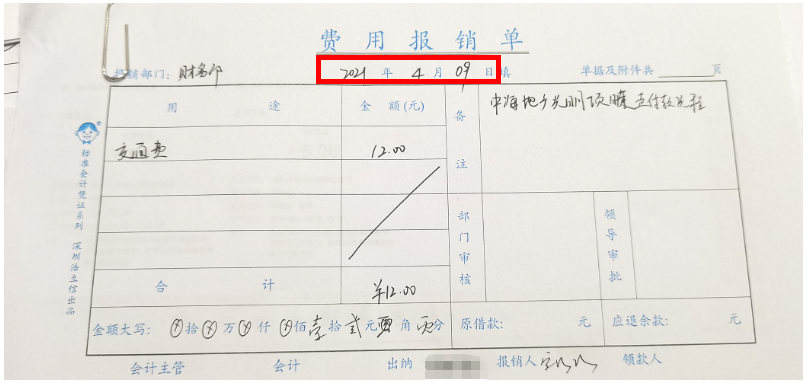 费用报销单
报销部门：财务部 2021年4月09日填 单据及附件共 页
用途 金额(元) 备注
交通费 12.00
合计 ¥12.00
部门审核 领导审批
金额大写： ⊗拾⊗万⊗仟⊗佰壹拾贰元零角零分 原借款： 元 应退余款： 元
会计主管 会计 出纳 报销人 领款人
标准会计凭证系列 深圳浩立信出品